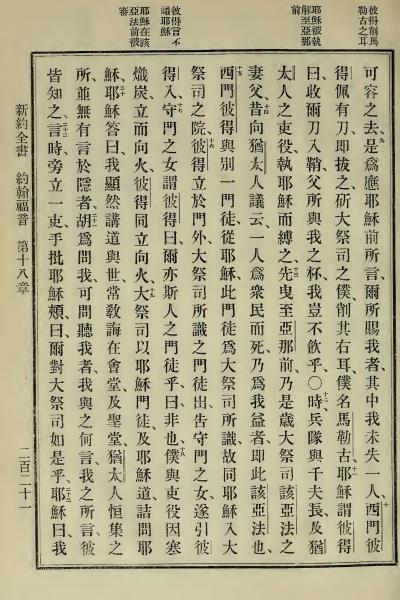 彼得削馬
勒古之耳
耶穌被執
解至亞那
前
彼得言不
識耶穌
耶穌在該
亞法前被
審
可容之去、是爲應耶穌前所言、爾所賜我者、其中我未失一人、西門彼
得佩有刀、卽拔之、斫大祭司之僕、削其右耳、僕名馬勒古、耶穌謂彼得
曰、收爾刀入鞘、父所與我之杯、我豈不飲乎〇時兵隊與千夫長、及猶
太人之吏役、執耶穌而縛之、先曳至亞那前、乃是歲大祭司該亞法之
妻父、昔向猶太人議云、一人爲衆民而死、乃爲我益者、卽此該亞法也、
西門彼得與別一門徒、從耶穌、此門徒爲大祭司所識、故同耶穌入大
祭司之院、彼得立於門外、大祭司所識之門徒出、告守門之女、遂引彼
得入、守門之女謂彼得曰、爾亦斯人之門徒乎、曰、非也、僕與吏役因寒
熾炭、立而向火、彼得同立向火、大祭司以耶穌門徒、及耶穌道、詰問耶
穌、耶穌答曰、我顯然講道與世、常敎誨在會堂及聖堂、猶太人恒集之
所、並無有言於隱者、胡爲問我、可問聽我者、我與之何言、我之所言、彼
皆知之、言時、旁立一吏、手批耶穌頰曰、爾對大祭司如是乎、耶穌曰、我
新約全書 約翰福音 第十八章 二百二十一